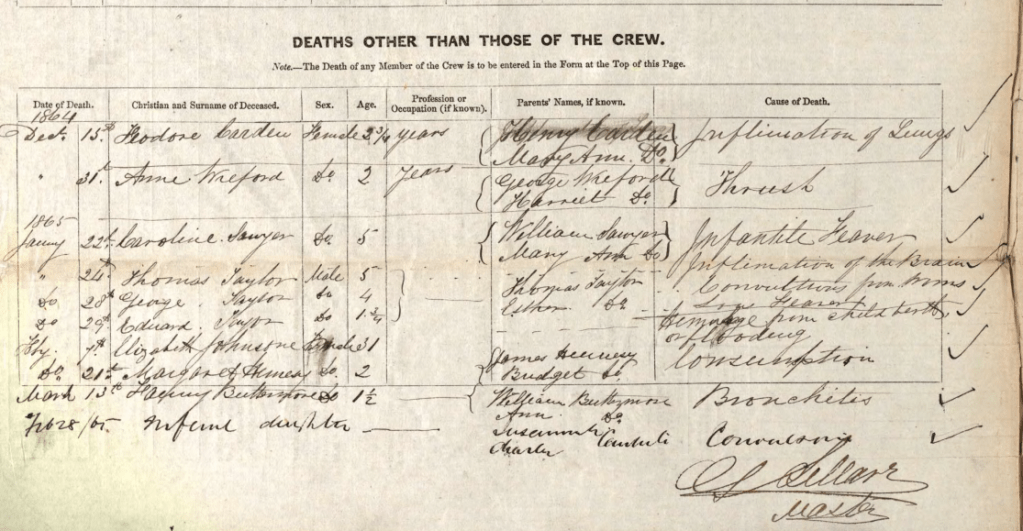 DEATHS OTHER THAN THOSE OF THE CREW.
Note.—The Death of any Member of the Crew is to be entered in the Form at the Top of this Page.
Date of Death. Christian and Surname of Deceased. Sex. Age. Profession or Occupation (if known). Parents' Names, if known. Cause of Death.
1864
Decr. 15th Feodore Carden Female 2 3/4 years Henry Carden Inflimation of Lungs
Mary Ann Do
" 31st Anne Wreford Do 2 years George Wreford Thrush
Harriet Do
1865
Janny 22nd Caroline Sawyer Do 5 William Sawyer Infantile Feaver
Mary Ann Do
" 24th Thomas Taylor Male 5 Thomas Taylor Inflimation of the Brain
Do 28th George Taylor Do 4 Esther Do Convultions from Worms
Do 29th Edward Taylor Do 1 3/4 Low Feaver
Feby. Elizabeth Johnstone Female 31 from child berth or flooding
Do 21st Margaret Do 2 James Consumption
Budget Do
March 13th Do 1 1/2 William Bronchitis
Ann Do
Feb 28/65 Infant daughter Convulsions
Charles
Master